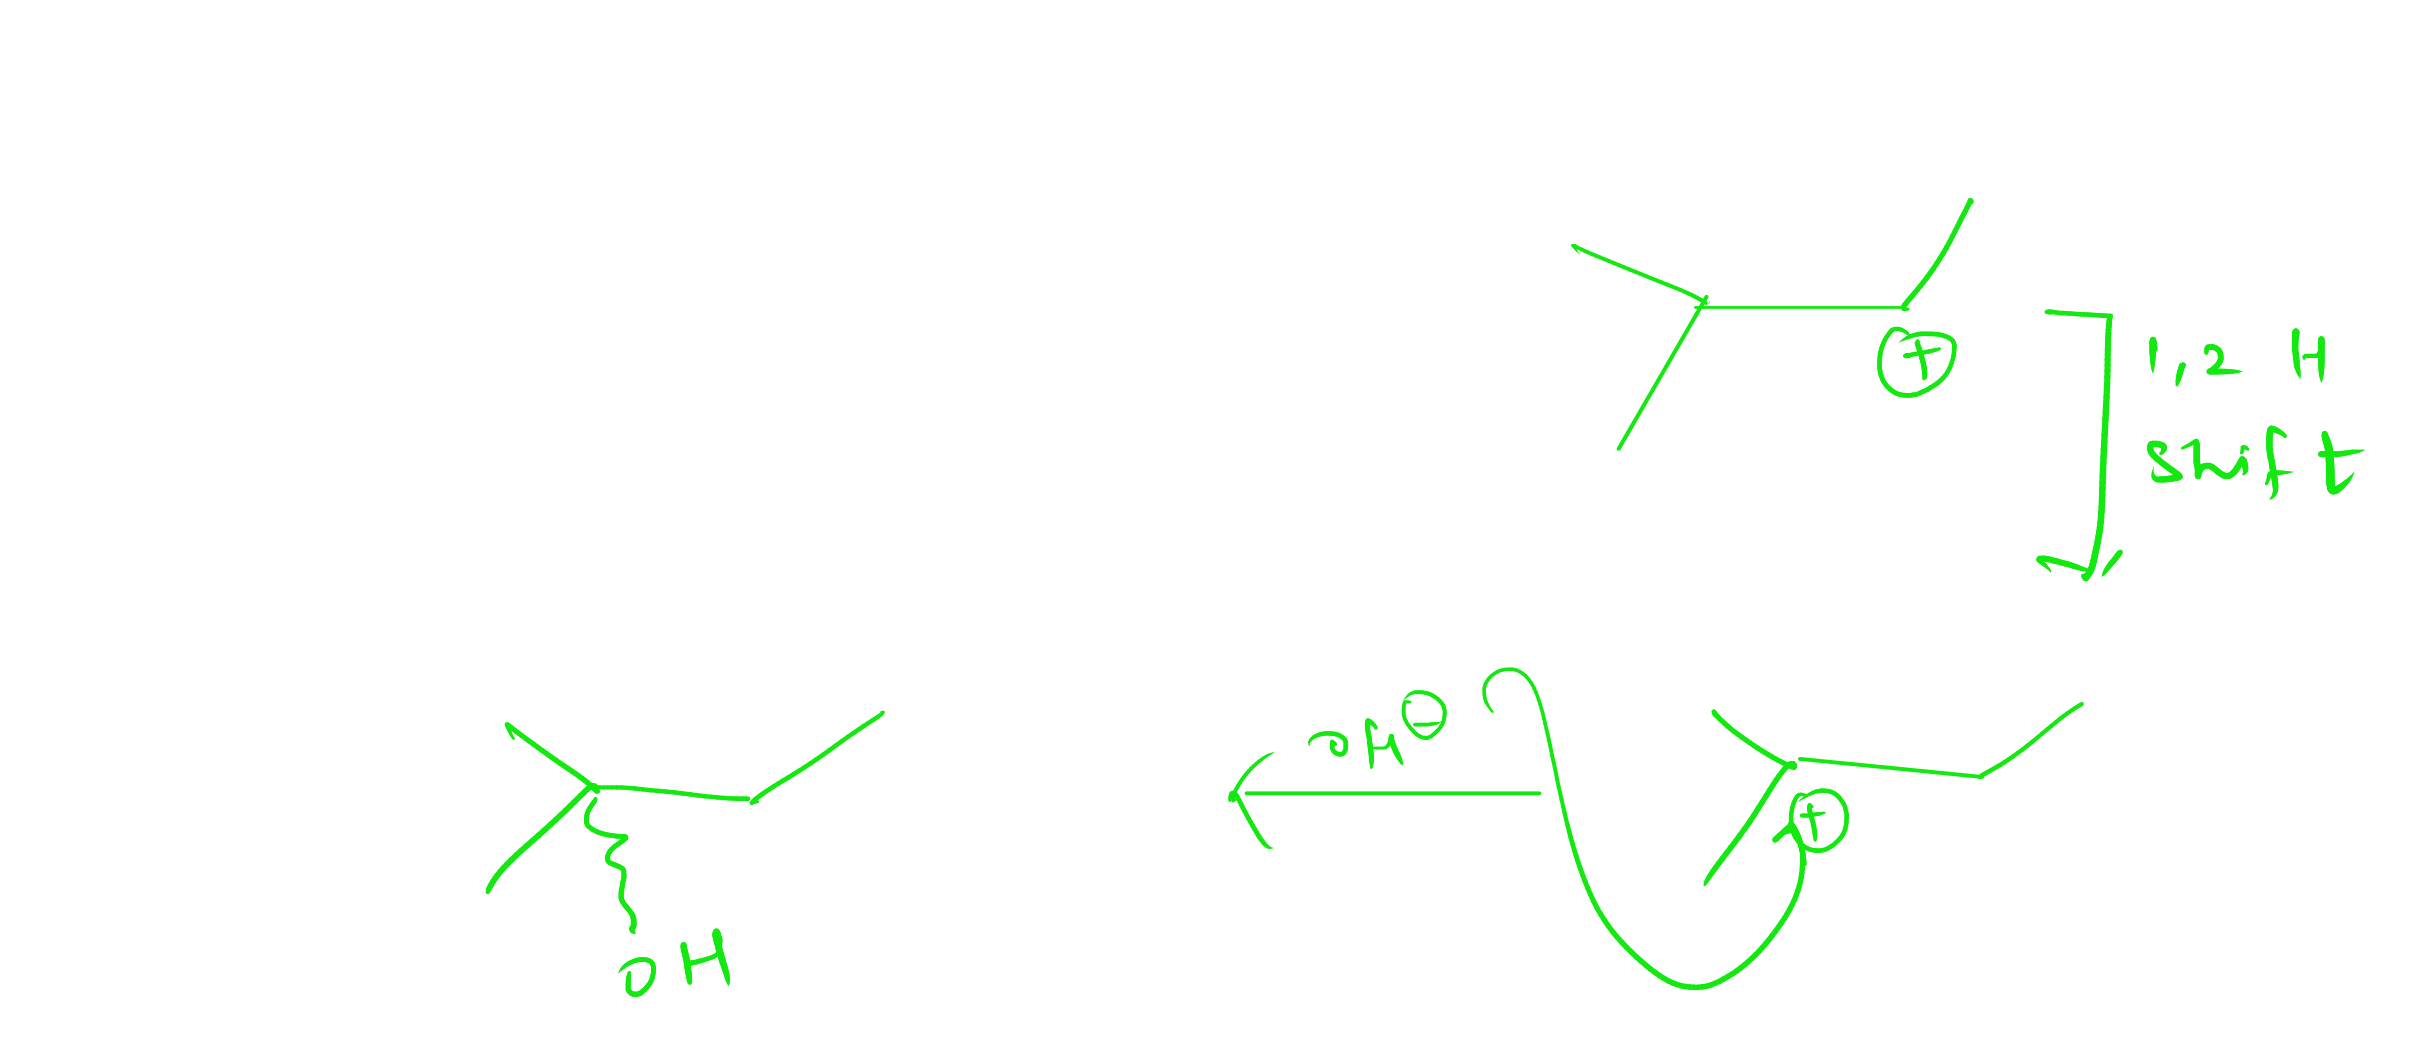 ⊕
1,2 H
shift
OH⊖
⊕
OH